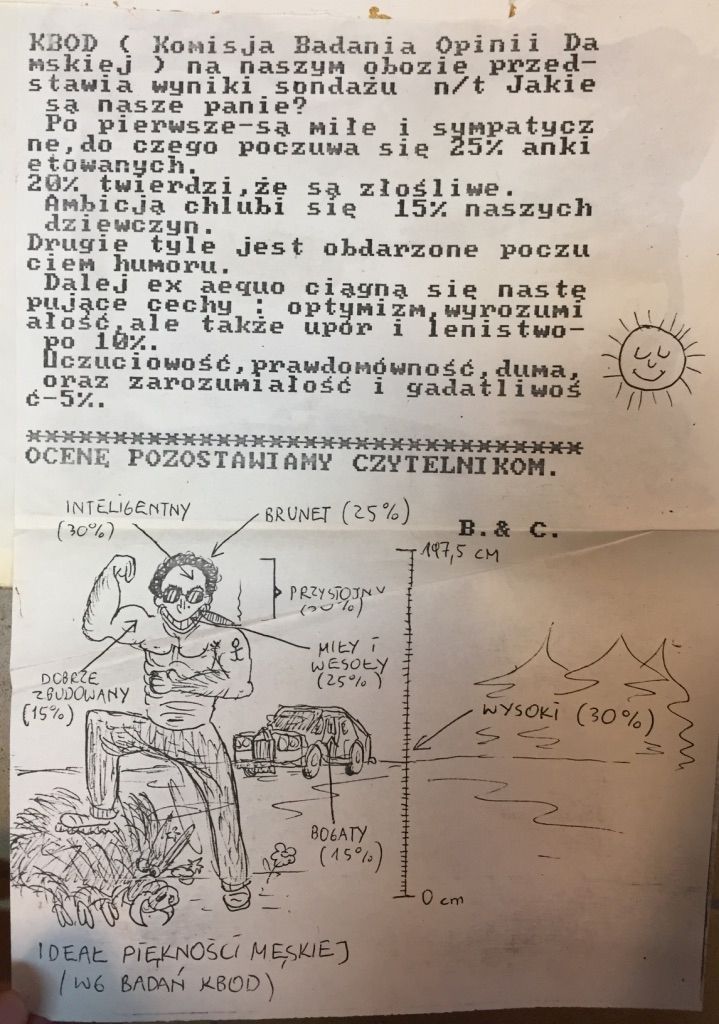 KBOD ( Komisja Badania Opinii Da
mskiej ) na naszym obozie przed-
stawia wyniki sondażu n/t Jakie
są nasze panie?
Po pierwsze-są miłe i sympatycz
ne,do czego poczuwa się 25% anki
etowanych.
20% twierdzi,że są złośliwe.
Ambicją chlubi się 15% naszych
dziewczyn.
Drugie tyle jest obdarzone poczu
ciem humoru.
Dalej ex aequo ciągną się nastę
pujące cechy : optymizm,wyrozumi
ałość,ale także upór i lenistwo-
po 10%.
Uczuciowość,prawdomówność,duma,
oraz zarozumiałość i gadatliwoś
ć-5%.
********************************
OCENĘ POZOSTAWIAMY CZYTELNIKOM.
B. & C.
INTELIGENTNY
(30%)
BRUNET (25%)
197,5 CM
PRZYSTOJNY
MIŁY I
WESOŁY
(25%)
DOBRZE
ZBUDOWANY
(15%)
WYSOKI (30%)
BOGATY
(15%)
0 cm
IDEAŁ PIĘKNOŚCI MĘSKIEJ
(WG BADAŃ KBOD)